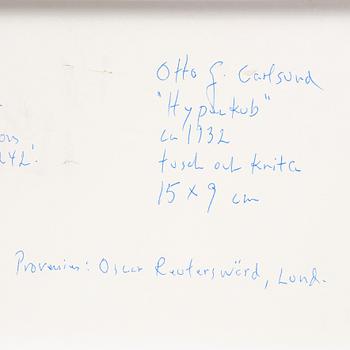 Otto G. Carlsund
"Hyperkub"
ca 1932
tusch och krita
15 x 9 cm
Proveniens: Oscar Reuterswärd, Lund.